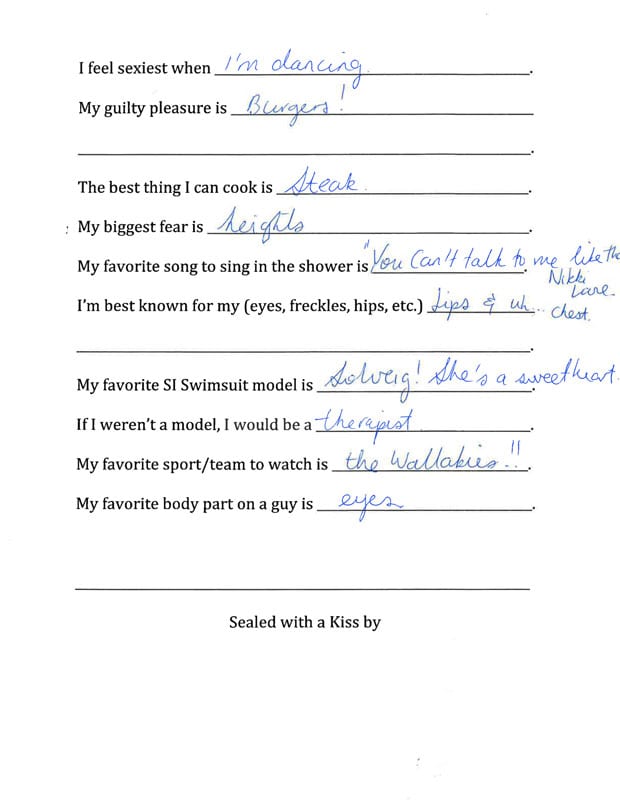 I feel sexiest when I'm dancing.
My guilty pleasure is Burgers!
The best thing I can cook is Steak.
My biggest fear is heights
My favorite song to sing in the shower is "You Can't talk to me like tha
Nikki
Lane.
I'm best known for my (eyes, freckles, hips, etc.) Lips & uh... chest.
My favorite SI Swimsuit model is Solveig! She's a sweetheart.
If I weren't a model, I would be a therapist.
My favorite sport/team to watch is the Wallabies!!.
My favorite body part on a guy is eyes.
Sealed with a Kiss by